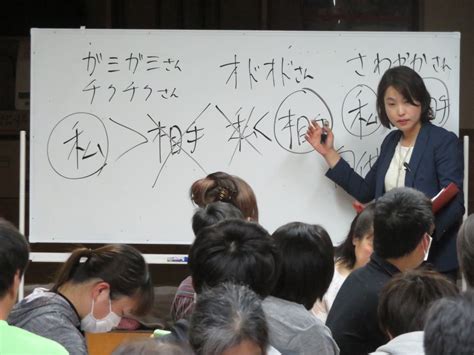 ガミガミさん
チクチクさん
私 > 相手
オドオドさん
私 < 相手
さわやかさん
私